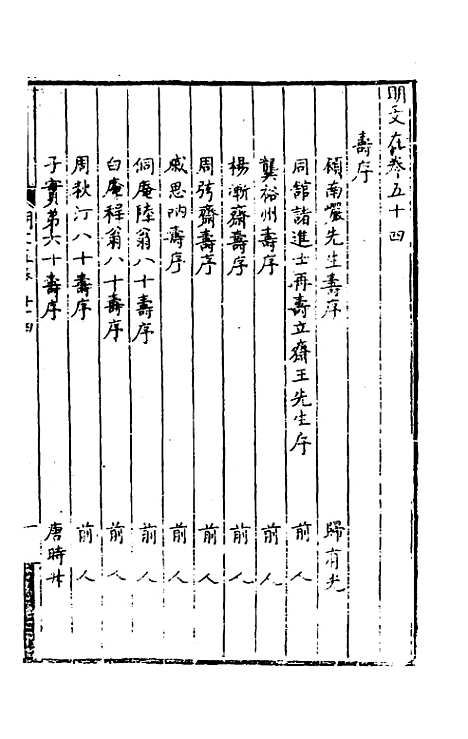 明文在卷五十四
壽序
顧南巖先生壽序 歸有光
同館諸進士再壽立齋王先生序 前人
龔裕州壽序 前人
楊漸齋壽序 前人
周弦齋壽序 前人
戚思吶壽序 前人
侗庵陸翁八十壽序 前人
白庵程翁八十壽序 前人
周秋汀八十壽序 前人
子實弟六十壽序 唐時升
明文在卷五十四 一